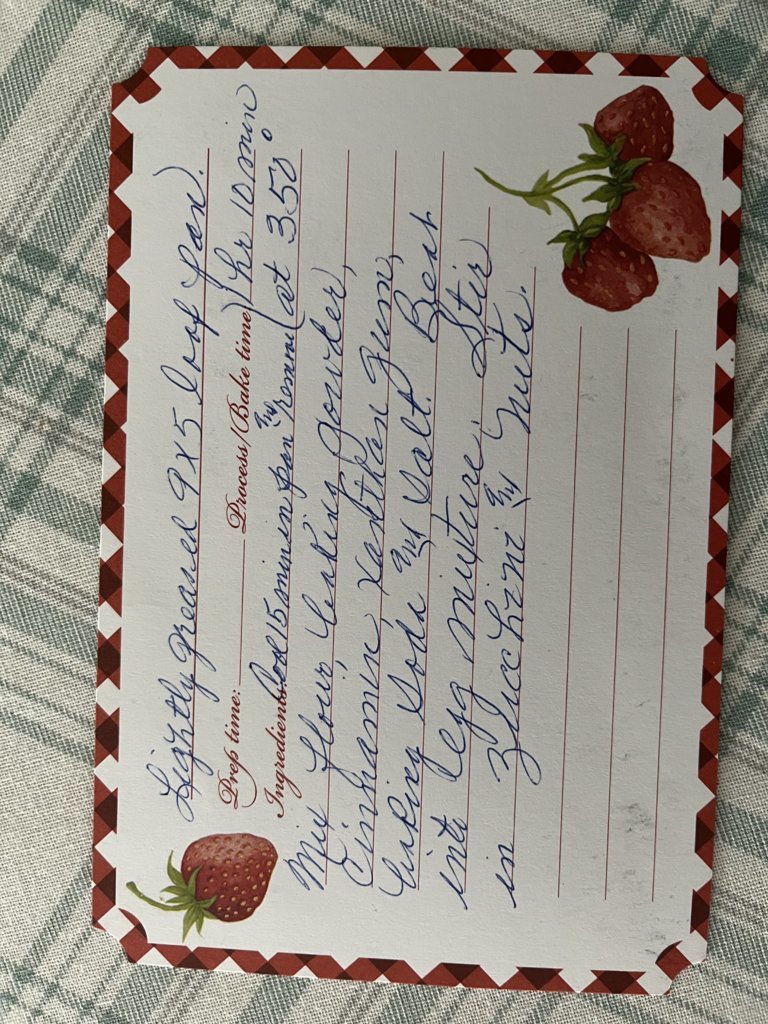 Lightly greased 9x5 loaf pan.
Prep time: Process/Bake time 1 hr 10 min
Ingredients: cool 15 min in pan & remove (at 350°
Mix flour, baking powder,
Cinnamin, xanthan gum,
baking soda & salt. Beat
into egg mixture. Stir
in zucchini & nuts.